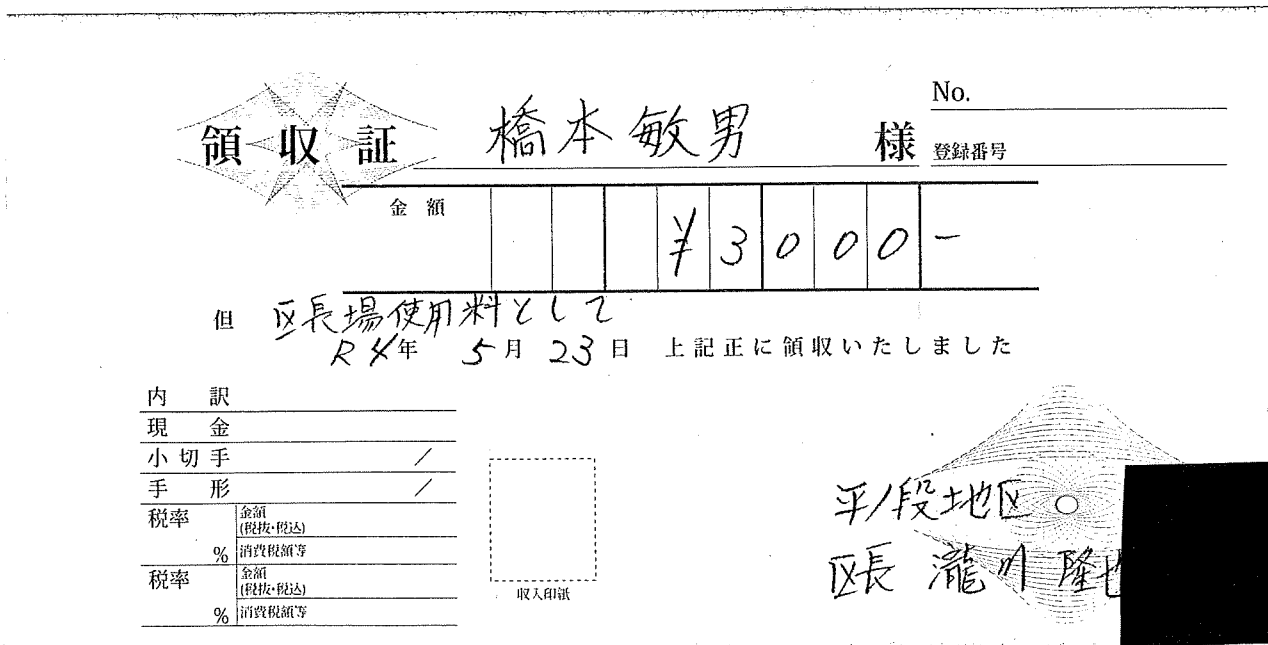 領収証 橋本敏男 様
No.
登録番号
金額 ¥3000-
但 区長場使用料として
R4年 5月 23日 上記正に領収いたしました
内訳
現金
小切手 /
手形 /
税率 % 金額(税抜・税込)
消費税額等
税率 % 金額(税抜・税込)
消費税額等
収入印紙
平ノ段地区
区長 瀧川 隆也